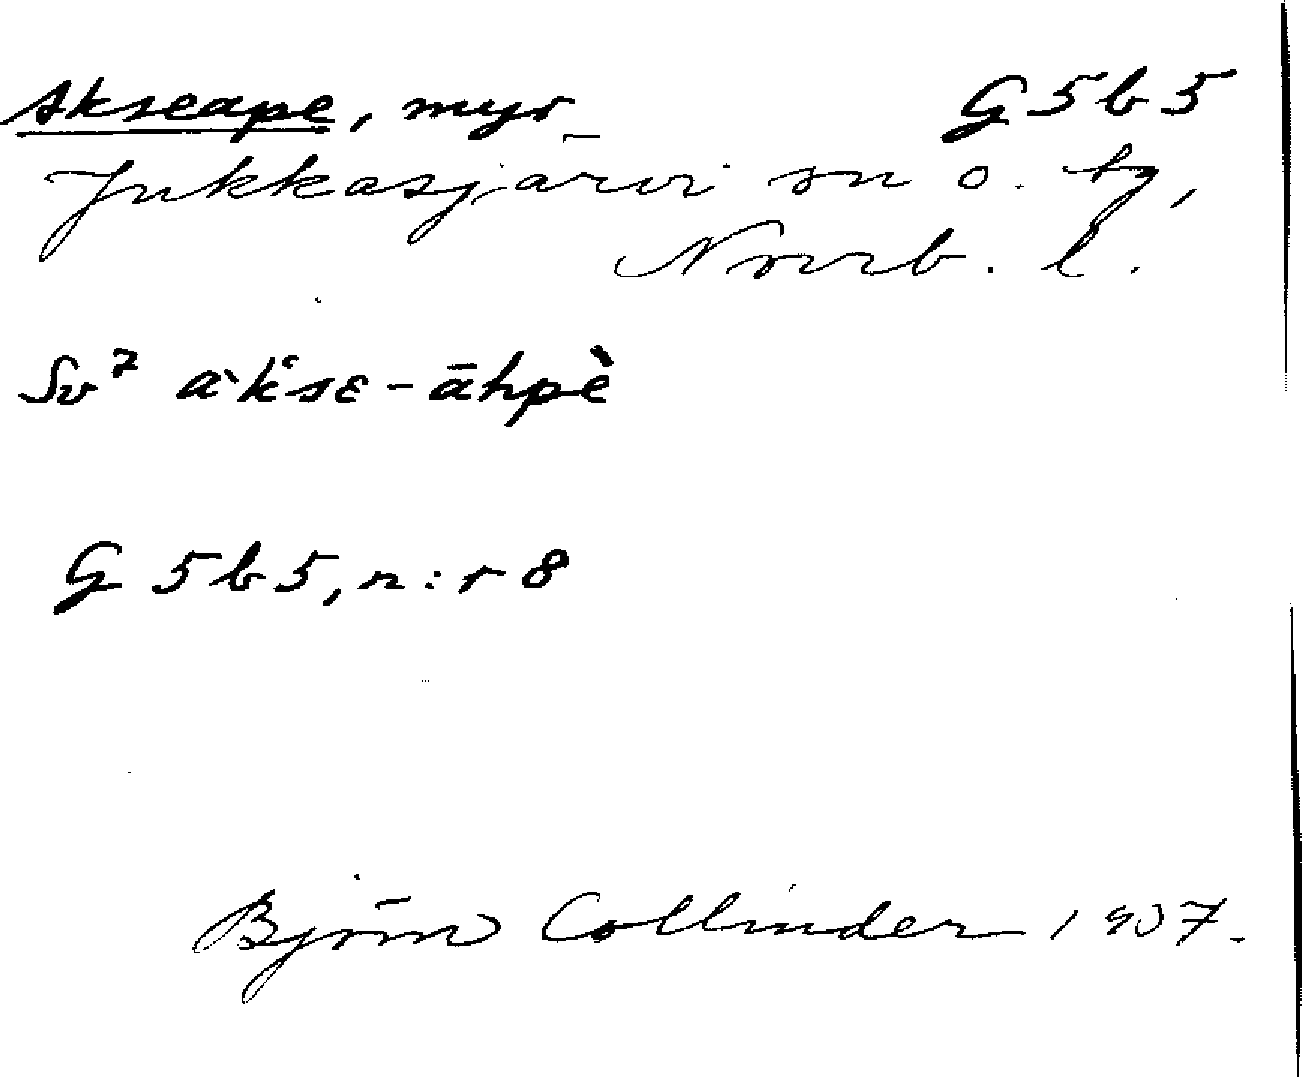 Akseape, myr G5b5
Jukkasjärvi sn o. tg,
Norrb. l.
Sv⁷ àk̔sɛ-āhpè
G 5b5, n:r 8
Björn Collinder 1937.